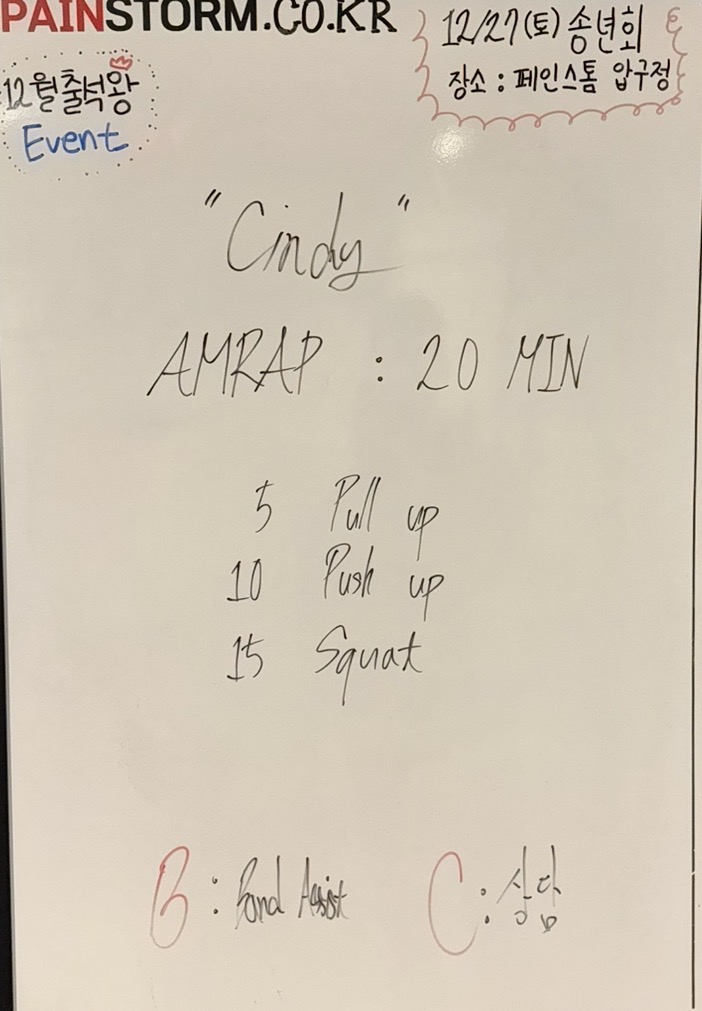 PAINSTORM.CO.KR
12/27(토) 송년회
장소 : 페인스톰 압구정
12월 출석왕
Event
"Cindy"
AMRAP : 20 MIN
5 Pull up
10 Push up
15 Squat
B : Band Assist
C : 상담